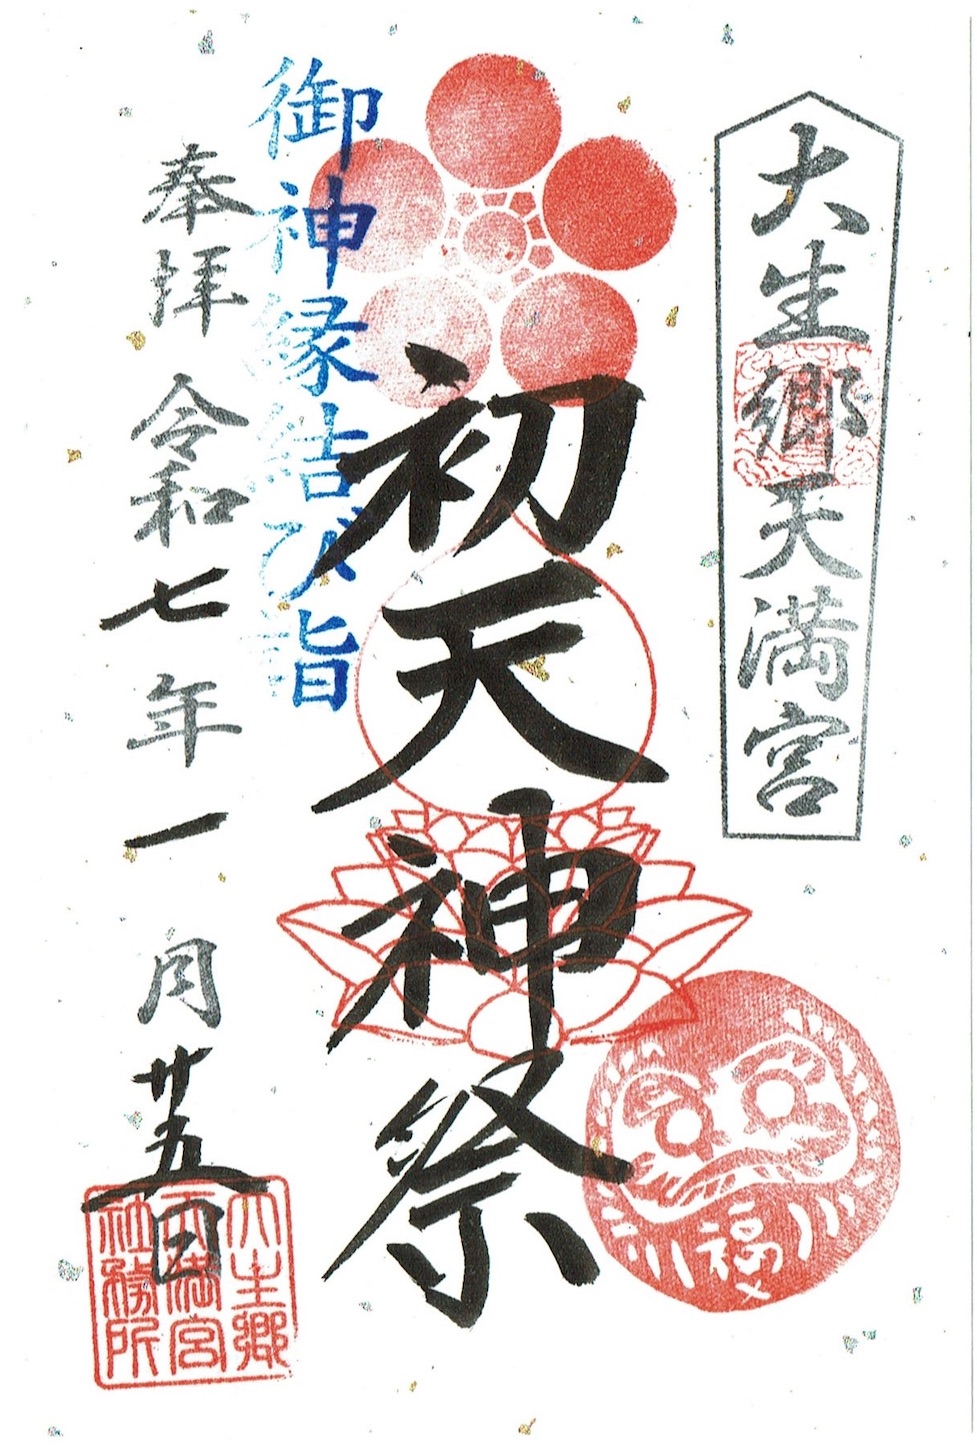 大生郷天満宮
初天神祭
福
御神縁結び詣
奉拝 令和七年一月廿五日
大生郷
天満宮
社務所